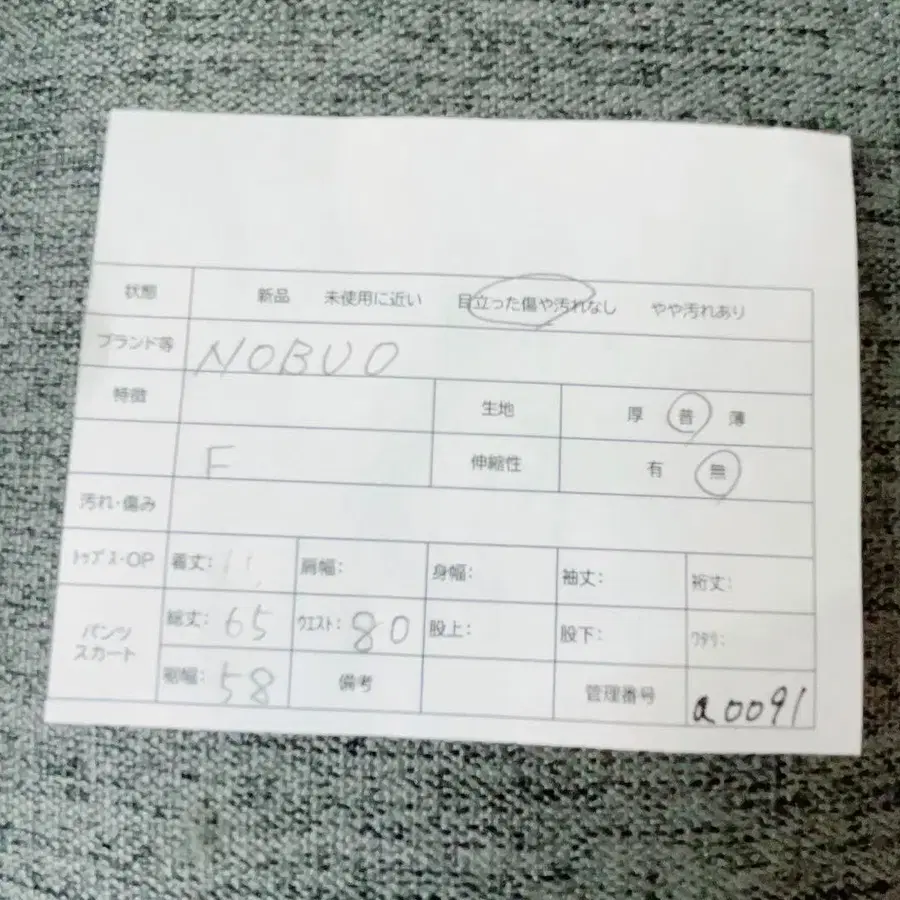 状態 新品 未使用に近い 目立った傷や汚れなし やや汚れあり
ブランド等 NOBUO
特徴 生地 厚 普 薄
F 伸縮性 有 無
汚れ・傷み
トップス・OP 着丈: 肩幅: 身幅: 袖丈: 裄丈:
パンツ スカート 総丈: 65 ウエスト: 80 股上: 股下: ワタリ:
裾幅: 58 備考 管理番号 a0091